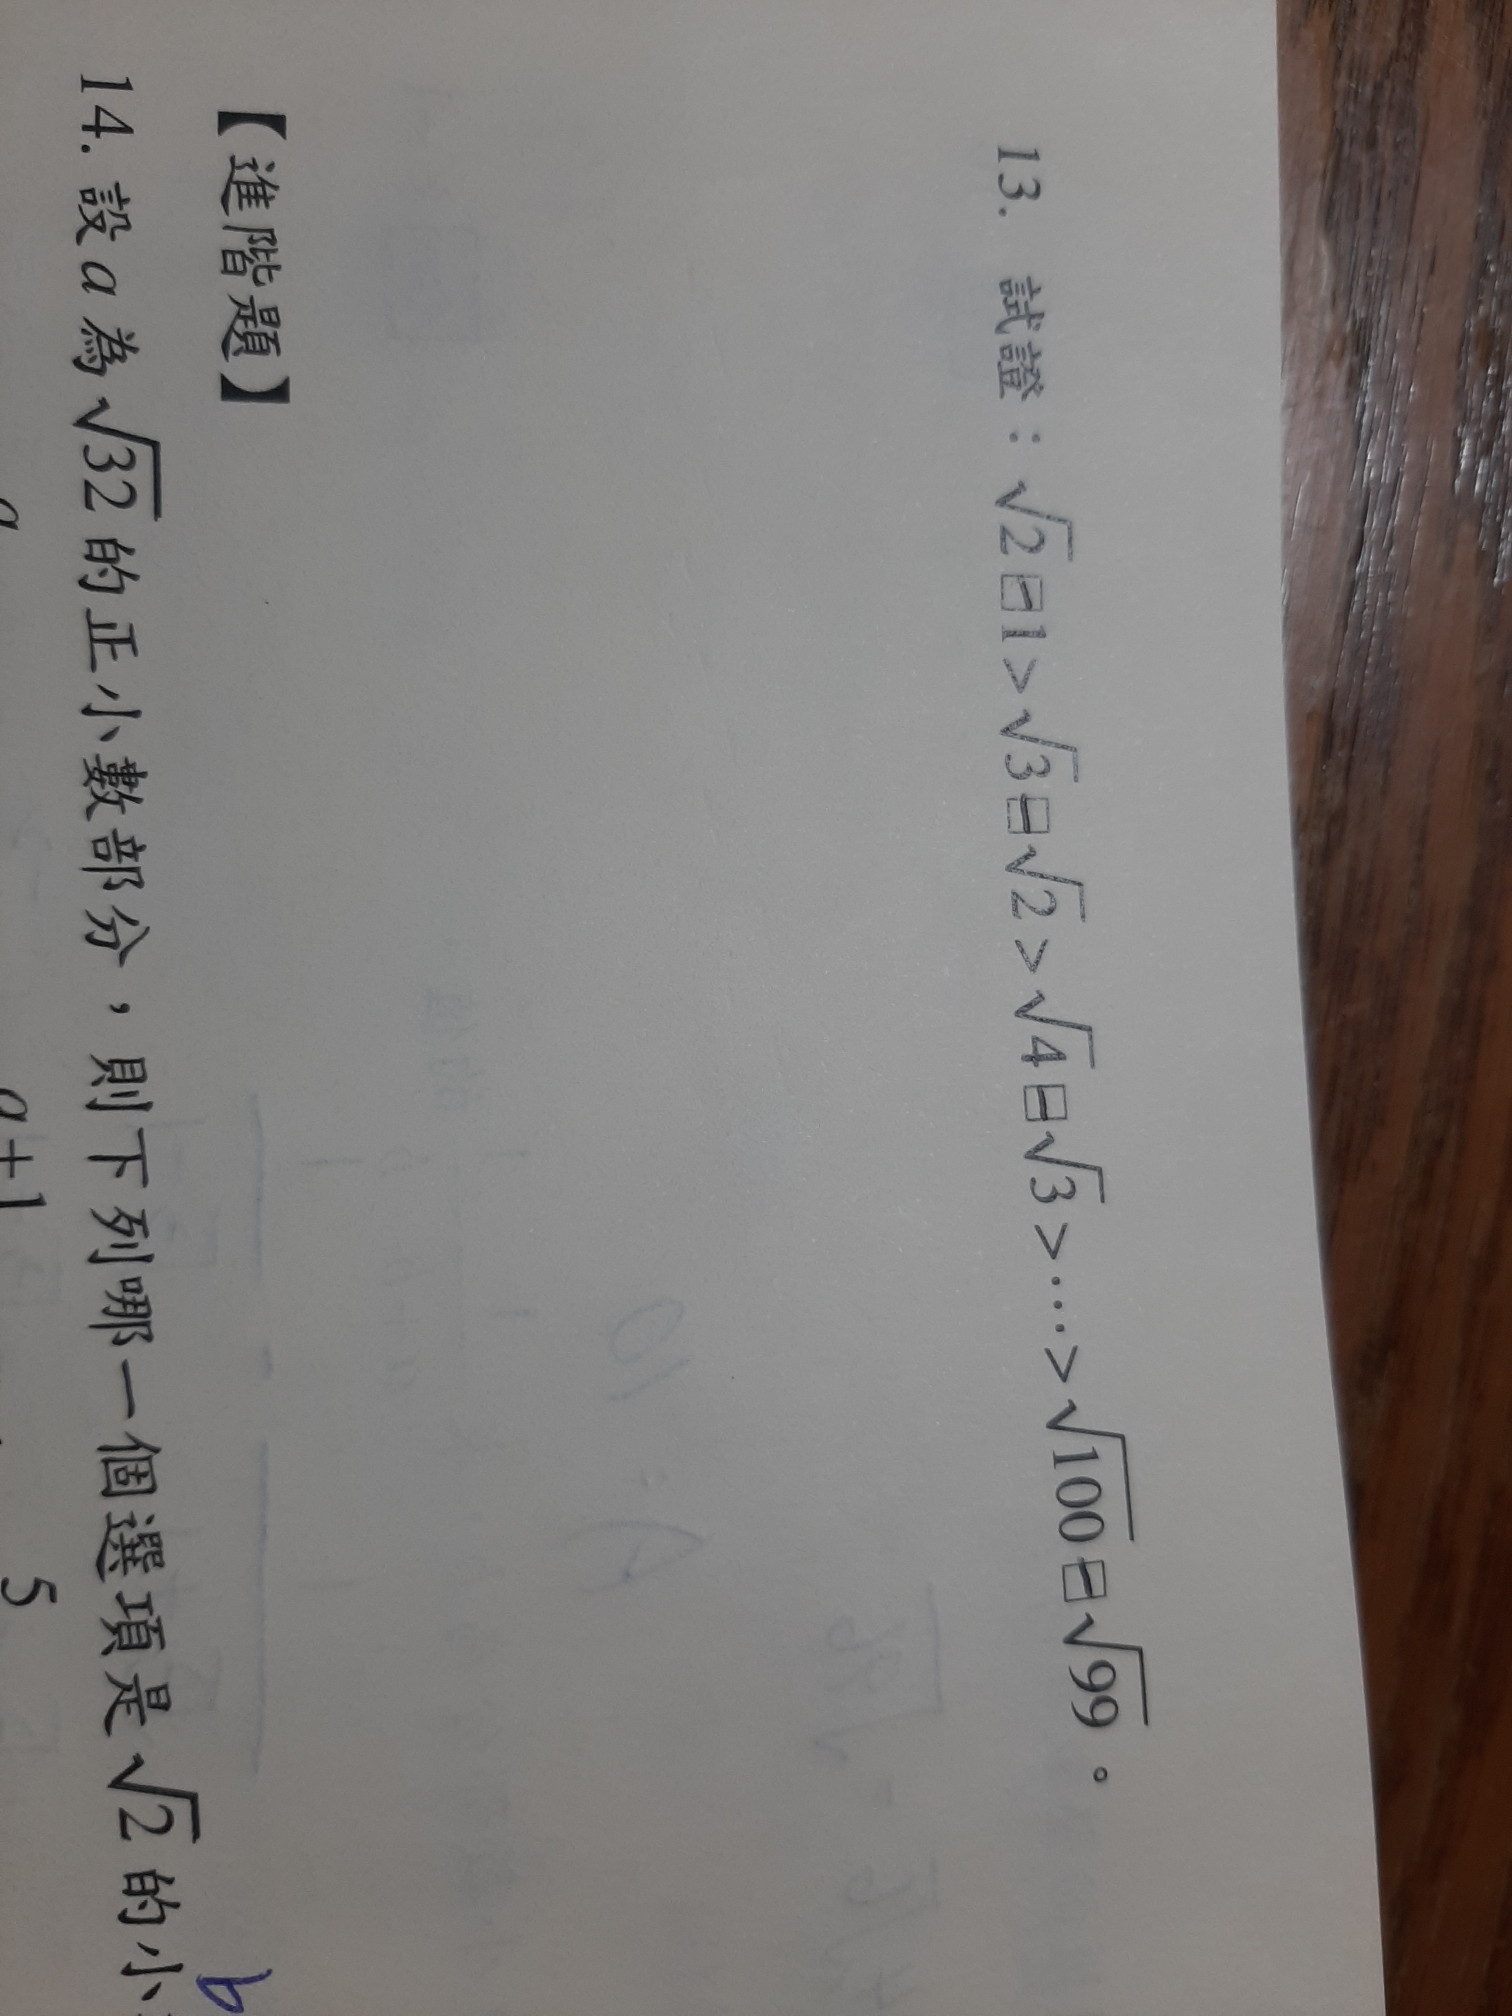 13. 試證：√2－1＞√3－√2＞√4－√3＞…＞√100－√99。
【進階題】
14. 設 a 為 √32 的正小數部分，則下列哪一個選項是 √2 的小
b
a+1
5